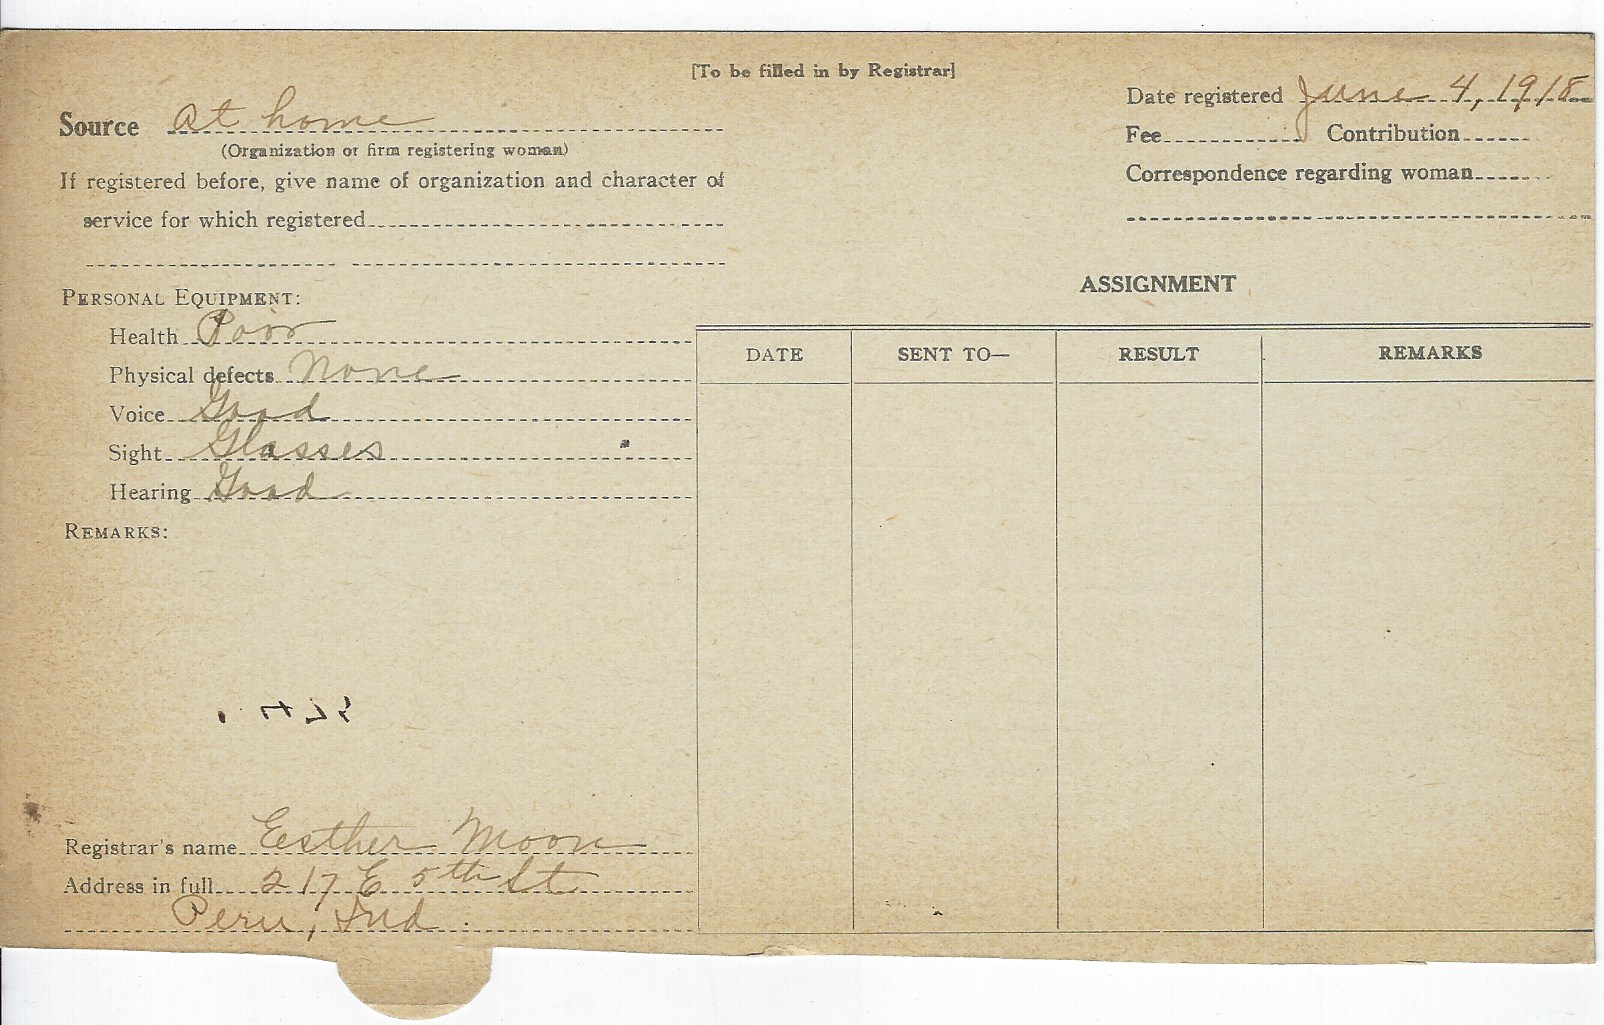 [To be filled in by Registrar]
Source At home
(Organization or firm registering woman)
If registered before, give name of organization and character of
service for which registered
Date registered June 4, 1918
Fee Contribution
Correspondence regarding woman
PERSONAL EQUIPMENT:
Health Poor
Physical defects None
Voice Good
Sight Glasses
Hearing Good
REMARKS:
Registrar's name Esther Moon
Address in full 217 E 5th St
Peru, Ind.
ASSIGNMENT
DATE SENT TO— RESULT REMARKS